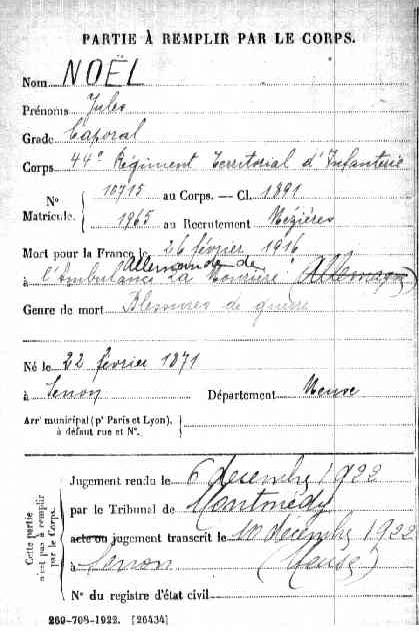 PARTIE À REMPLIR PAR LE CORPS.
Nom NOËL
Prénoms Jules
Grade Caporal
Corps 44e Régiment Territorial d'Infanterie
N° Matricule. 10715 au Corps. — Cl. 1891
1965 au Recrutement Mézières
Mort pour la France le 26 février 1916
Allemande de
à l'Ambulance La Allemagne
Genre de mort Blessures de guerre
Né le 22 février 1871
à Senon Département Meuse
Arrt municipal (pr Paris et Lyon),
à défaut rue et N°.
Cette partie n'est pas à remplir par le Corps.
Jugement rendu le 6 décembre 1922
par le Tribunal de Montmédy
acte ou jugement transcrit le 10 décembre 1922
à Senon (Meuse)
N° du registre d'état civil
269-708-1922. [26434]